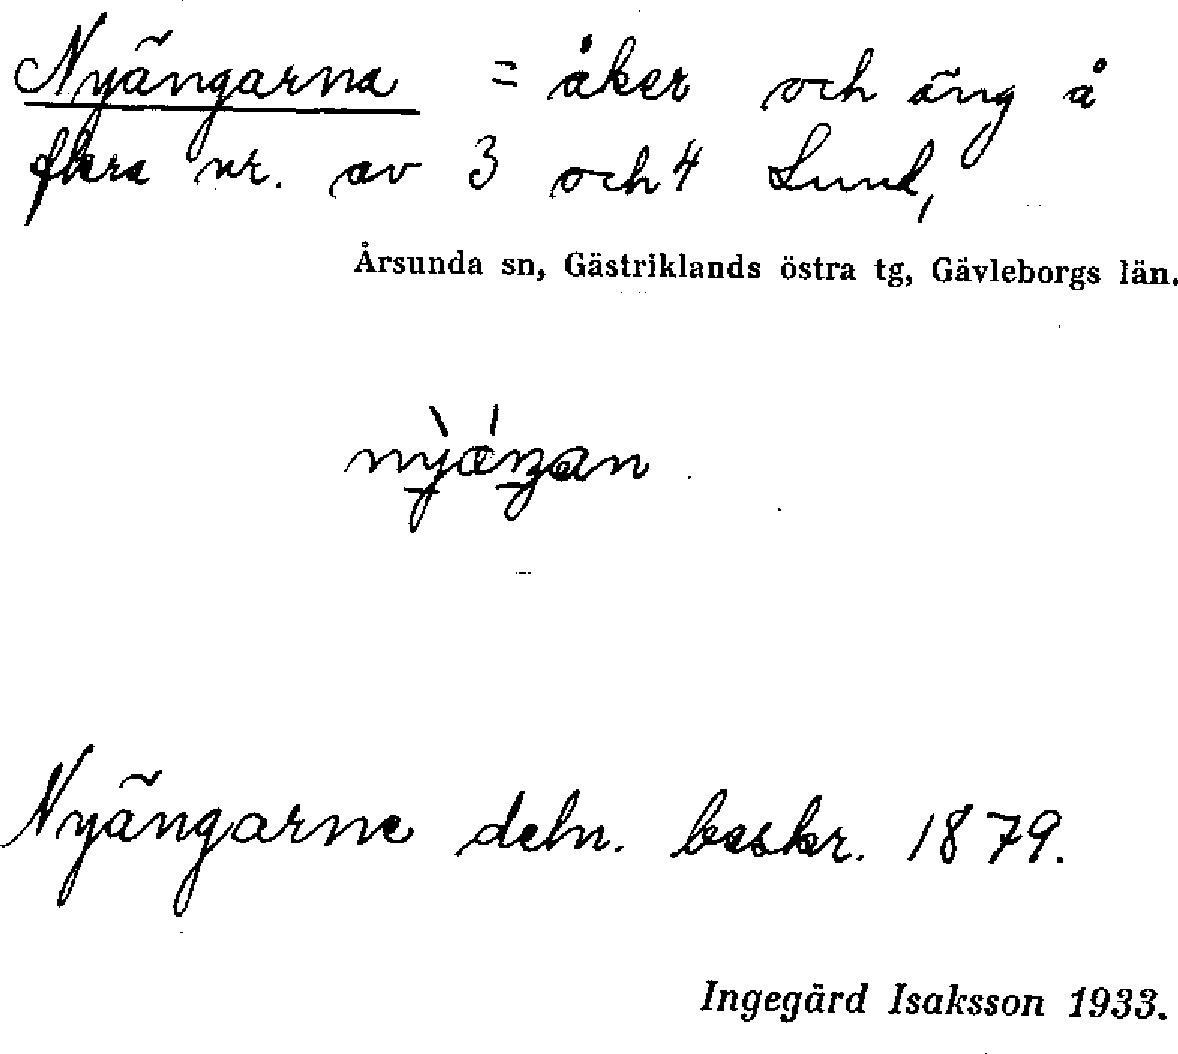 Nyängarna = åker och äng å
flera nr. av 3 och 4 Lund,
Årsunda sn, Gästriklands östra tg, Gävleborgs län.
Nyängarne deln. beskr. 1879.
Ingegärd Isaksson 1933.